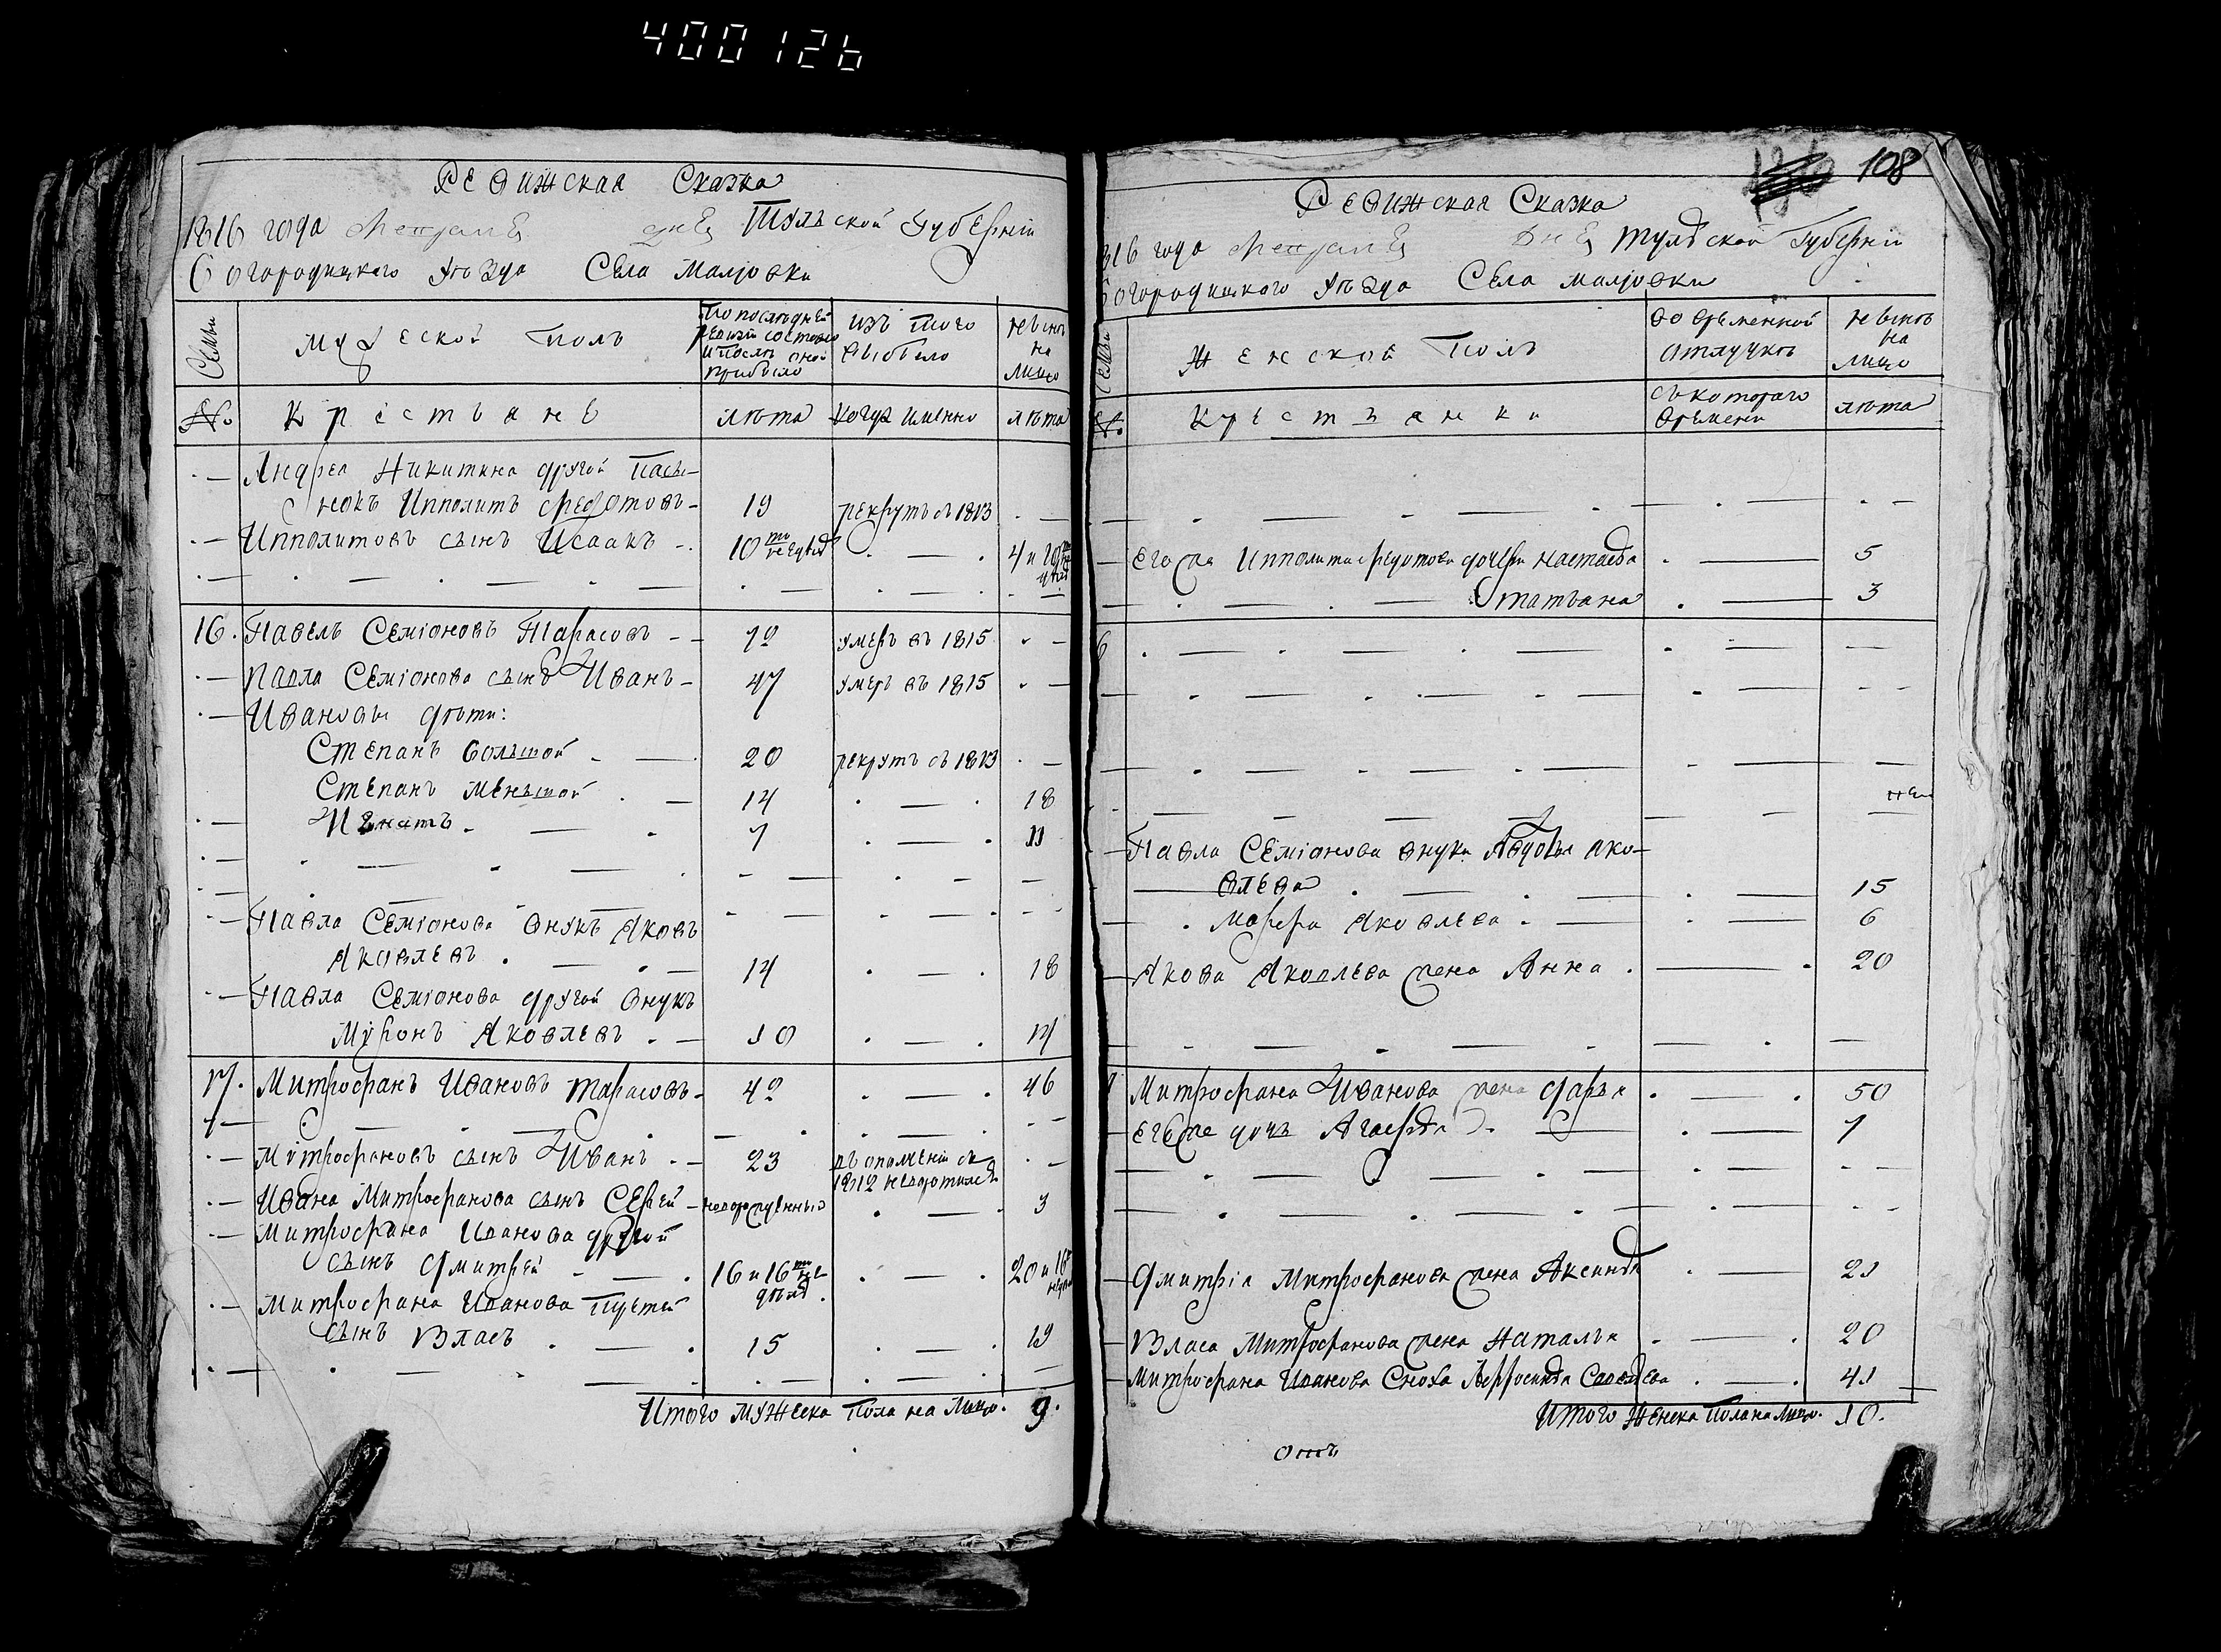 4000126
Ревижская Сказка
1816 года Февраля дня Тульской Губернiи
Богородицкого уѣзда Села Малiовки
Семьи
Мужеской Полъ
По последней ревизiи состояло и после оной прибыло
изъ того выбыло
ныне на лицо
№.
Крестьяне
лѣта
когда именно
лѣта
Андрея Никитина другой Пасы-
нокъ Ипполитъ Федотовъ 19 рекрутъ съ 1813
Ипполитовъ сынъ Исаакъ 10ти недель 4 и 10
16. Павелъ Семiоновъ Тарасовъ умеръ въ 1815
Павла Семiонова сынъ Иванъ 47 умеръ въ 1815
Ивановы дѣти:
Степанъ большой 20 рекрутъ съ 1813
Степанъ меньшой 14 18
Игнатъ 7 11
Павла Семiонова внукъ Яковъ
Яковлевъ 14 18
Павла Семiонова другой внукъ
Мѵронъ Яковлевъ 10 14
17. Митрофанъ Ивановъ Тарасовъ 42 46
Митрофановъ сынъ Иванъ 23 въ ополченiи съ
1812 невозвратился
Ивана Митрофанова сынъ Сергей новорожденный 3
Митрофана Иванова другой
сынъ Дмитрей 16 и 16ти недѣль 20 и 16
Митрофана Иванова Третей
сынъ Власъ 15 19
Итого мужеска пола на лицо. 9.
108
Ревижская Сказка
1816 года Февраля Дня Тульской Губернiи
Богородицкого уѣзда Села Малiовки
Семьи
Женской Полъ
Во временной отлучкѣ
ныне на лицо
№.
Крестьянки
съ котораго времени
лѣта
Его же Ипполита Федотова дочери Настасья 5
Татьяна 3
Павла Семiонова внука Авдотья Яко-
влева 15
Марфа Яковлева 6
Якова Яковлева жена Анна 20
Митрофана Иванова жена Дарья 50
Его же дочь Агафья 7
Дмитрiя Митрофанова жена Аксинья 21
Власа Митрофанова жена Наталья 20
Митрофана Иванова Сноха Афросинья Савельева 41
Итого женска пола на лицо. 10.
отъ